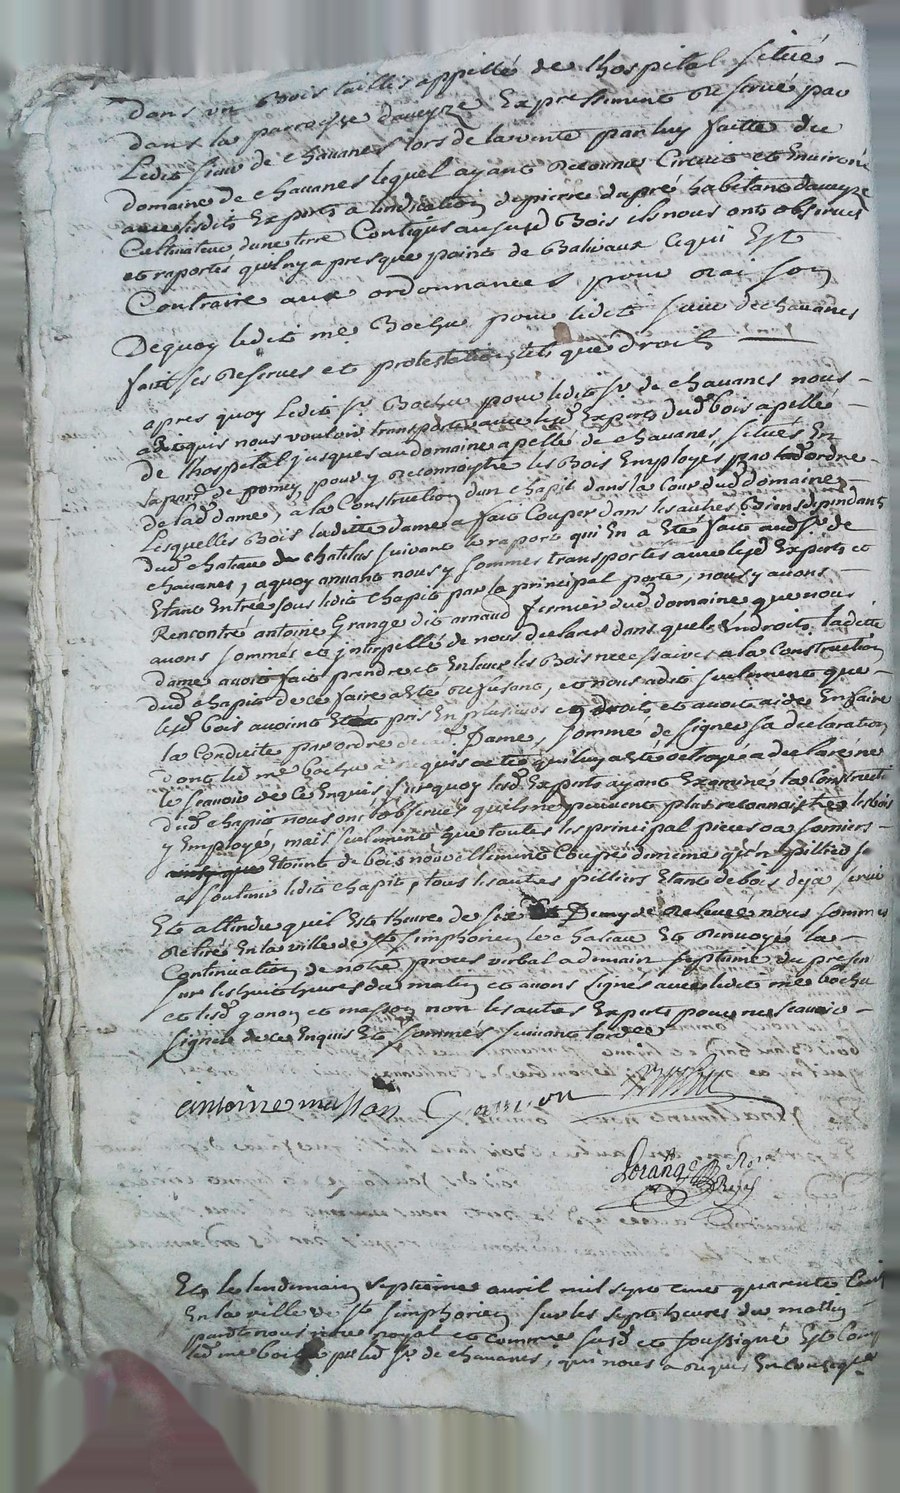 dans un Bois taillis appellé de lhospital situé
dans la parroisse daveyze Expressement reservé par
Ledit sieur de chavanes lors de la vente par luy faitte du
domaine de chavanes lequel ayant retourné Circuit et Environé
avec lesdits Experts a lindication de pierre dupré habitant daveyze
Cultivateur dune terre Contigue au susd Bois ils nous ont observés
et raportés quil ny a presque point de Balivaux Cequi Est
Contraire aux ordonnances pour
Dequoy ledit me Bochu pour ledit sieur de chavanes
fait ses reserves et protestations tels que droit
apres quoy Ledit sr Bochu pour ledit sr de chavanes nous
a requis nous vouloir transporter avec lesd Experts dud bois apellé
de lhospital jusques au domaine apellé de chavanes, situés En
la parr de pomey, pour y reconnoistre les Bois Employés par lordre
de lad dame, a la Construction dun chapit dans la Cour dud domaine
Lesquelles Bois laditte dame a fait Couper dans les autres Biens dependant
dud chateau de chatelus suivant le raport qui En a Eté fait aud sr de
chavanes, a quoy avant nous y sommes transportés avec lesd Experts et
Etant Entrée sous ledit chapit par la principal porte, nous y avons
Rencontré antoine Grange dit arnaud fermier dud domaine que nous
avons sommés et interpellé de nous declarer dans quels Endroits laditte
dame avoit fait prendre et Enlever les Bois necessaires a la Construction
dud chapit de ce faire a Eté refusant, et nous a dit seulement que
lesd bois avoint Eté pris En plusieurs Endroit et avoit aidé En faire
la Conduitte par ordre de lad Dame, sommé de signer sa declaration
dont led me bochu a requis acte qui luy a Eté octroyé a declaré ne
le scavoir de Ce Enquis surquoy lesd Experts ayant Examiné la Construction
dud chapit nous ont observés quils ne peuvent plus reconnoistre les bois
y Employé, mais seulement que toutes les principal pieces ou somiers
Etoint de bois nouvellement Coupé de meme quun pillier
a soutenir ledit chapit, tous les autres pilliers Etant de bois deja servi
Et attendu quil Est lheure de six Et Demy de relevée nous sommes
retiré En la ville de st simphorien le chateau Et renvoyé la
Continuation de notre proces verbal a demain septieme du present
sur les huit heures du matin et avons signés avec ledit me bochu
et lesd gonon et masson non les autres Experts pour ne scavoir
signer de ce Enquis Et sommes suivant lordce
antoine masson Gonon Bochu
Lorange
Et le lendemain septieme avril mil sept cent quarante
En la ville de st simphorien sur les sept heures du mattin
pardt nous nore royal et commre susd et soussigné Est Comparu
led me bochu pr led sr de chavanes, qui nous a requis En conseqce